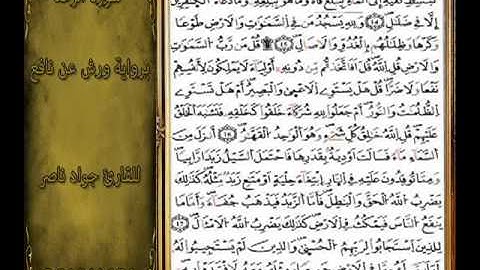 سورة الرعد
برواية ورش عن نافع
للقارئ جواد ناصر
كبسط كفيه إلى الماء ليبلغ فاه وما هو ببلغه وما دعاء الكفرين
إلا في ضلل ولله يسجد من في السموت والارض طوعا
وكرها وظللهم بالغدو والاصال قل من رب السموت
والارض قل الله قل افاتخذتم من دونه أولياء لا يملكون لأنفسهم
نفعا ولا ضرا قل هل يستوى الاعمى والبصير أم هل تستوى
الظلمت والنور أم جعلوا لله شركاء خلقوا كخلقه فتشبه الخلق
عليهم قل الله خلق كل شيء وهو الوحد القهر أنزل من
السماء ماء فسالت أودية بقدرها فاحتمل السيل زبدا رابيا
ومما توقدون عليه في النار ابتغاء حلية أو متع زبد مثله كذلك
يضرب الله الحق والبطل فأما الزبد فيذهب جفاء وأما ما
ينفع الناس فيمكث في الارض كذلك يضرب الله الامثال
للذين استجابوا لربهم الحسنى والذين لم يستجيبوا له
لو أن لهم ما في الارض جميعا ومثله معه لافتدوا به